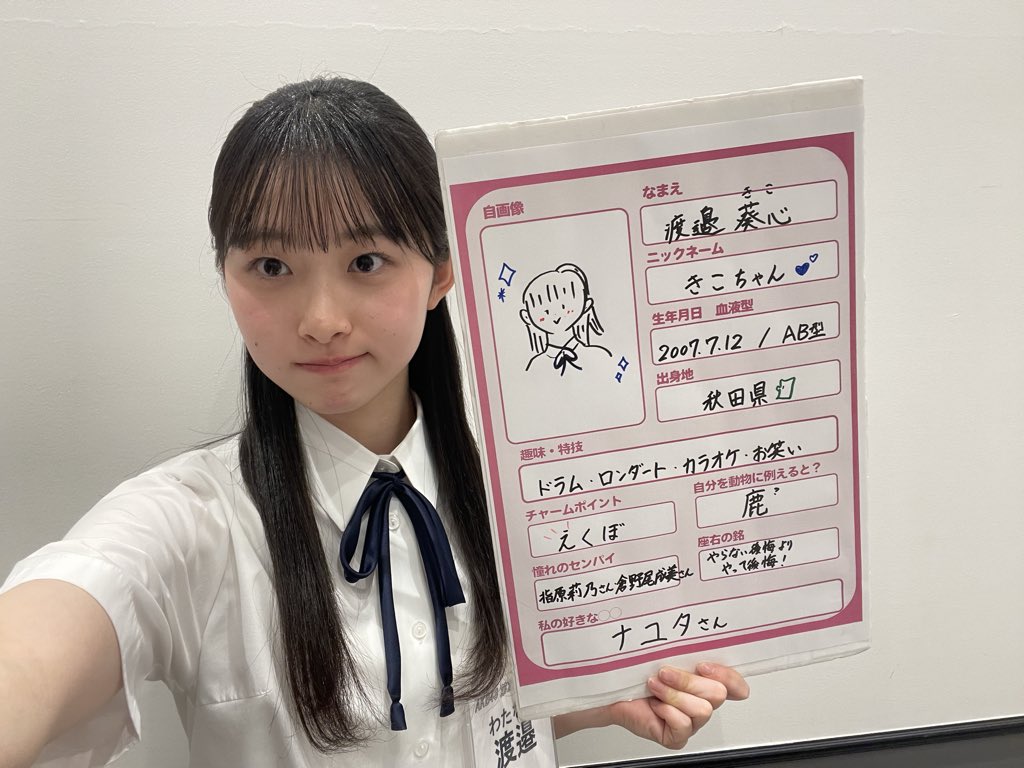 自画像
なまえ
きこ
渡邉 葵心
ニックネーム
きこちゃん
生年月日 血液型
2007.7.12 / AB型
出身地
秋田県
趣味・特技
ドラム・ロンダート・カラオケ・お笑い
チャームポイント
えくぼ
自分を動物に例えると？
鹿?
憧れのセンパイ
指原莉乃さん倉野尾成美さん
座右の銘
やらない後悔より
やって後悔!
私の好きな○○
ナユタさん
わた
渡邉